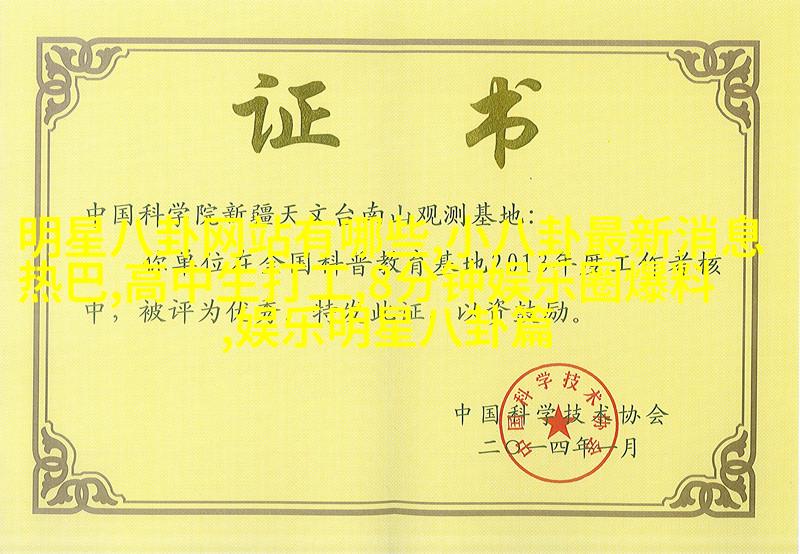 证 书
中国科学院新疆天文台南山观测基地:
明星八卦网站有哪些,小八卦最新消息
你单位在全国科普教育基地2013年度工作考核
热巴,高中生打工,8分钟娱乐圈爆料
中，被评为优秀，特发此证，以资鼓励。
,娱乐明星八卦篇
中国科学技术协会
中国科学技术协会
二〇一四年一月